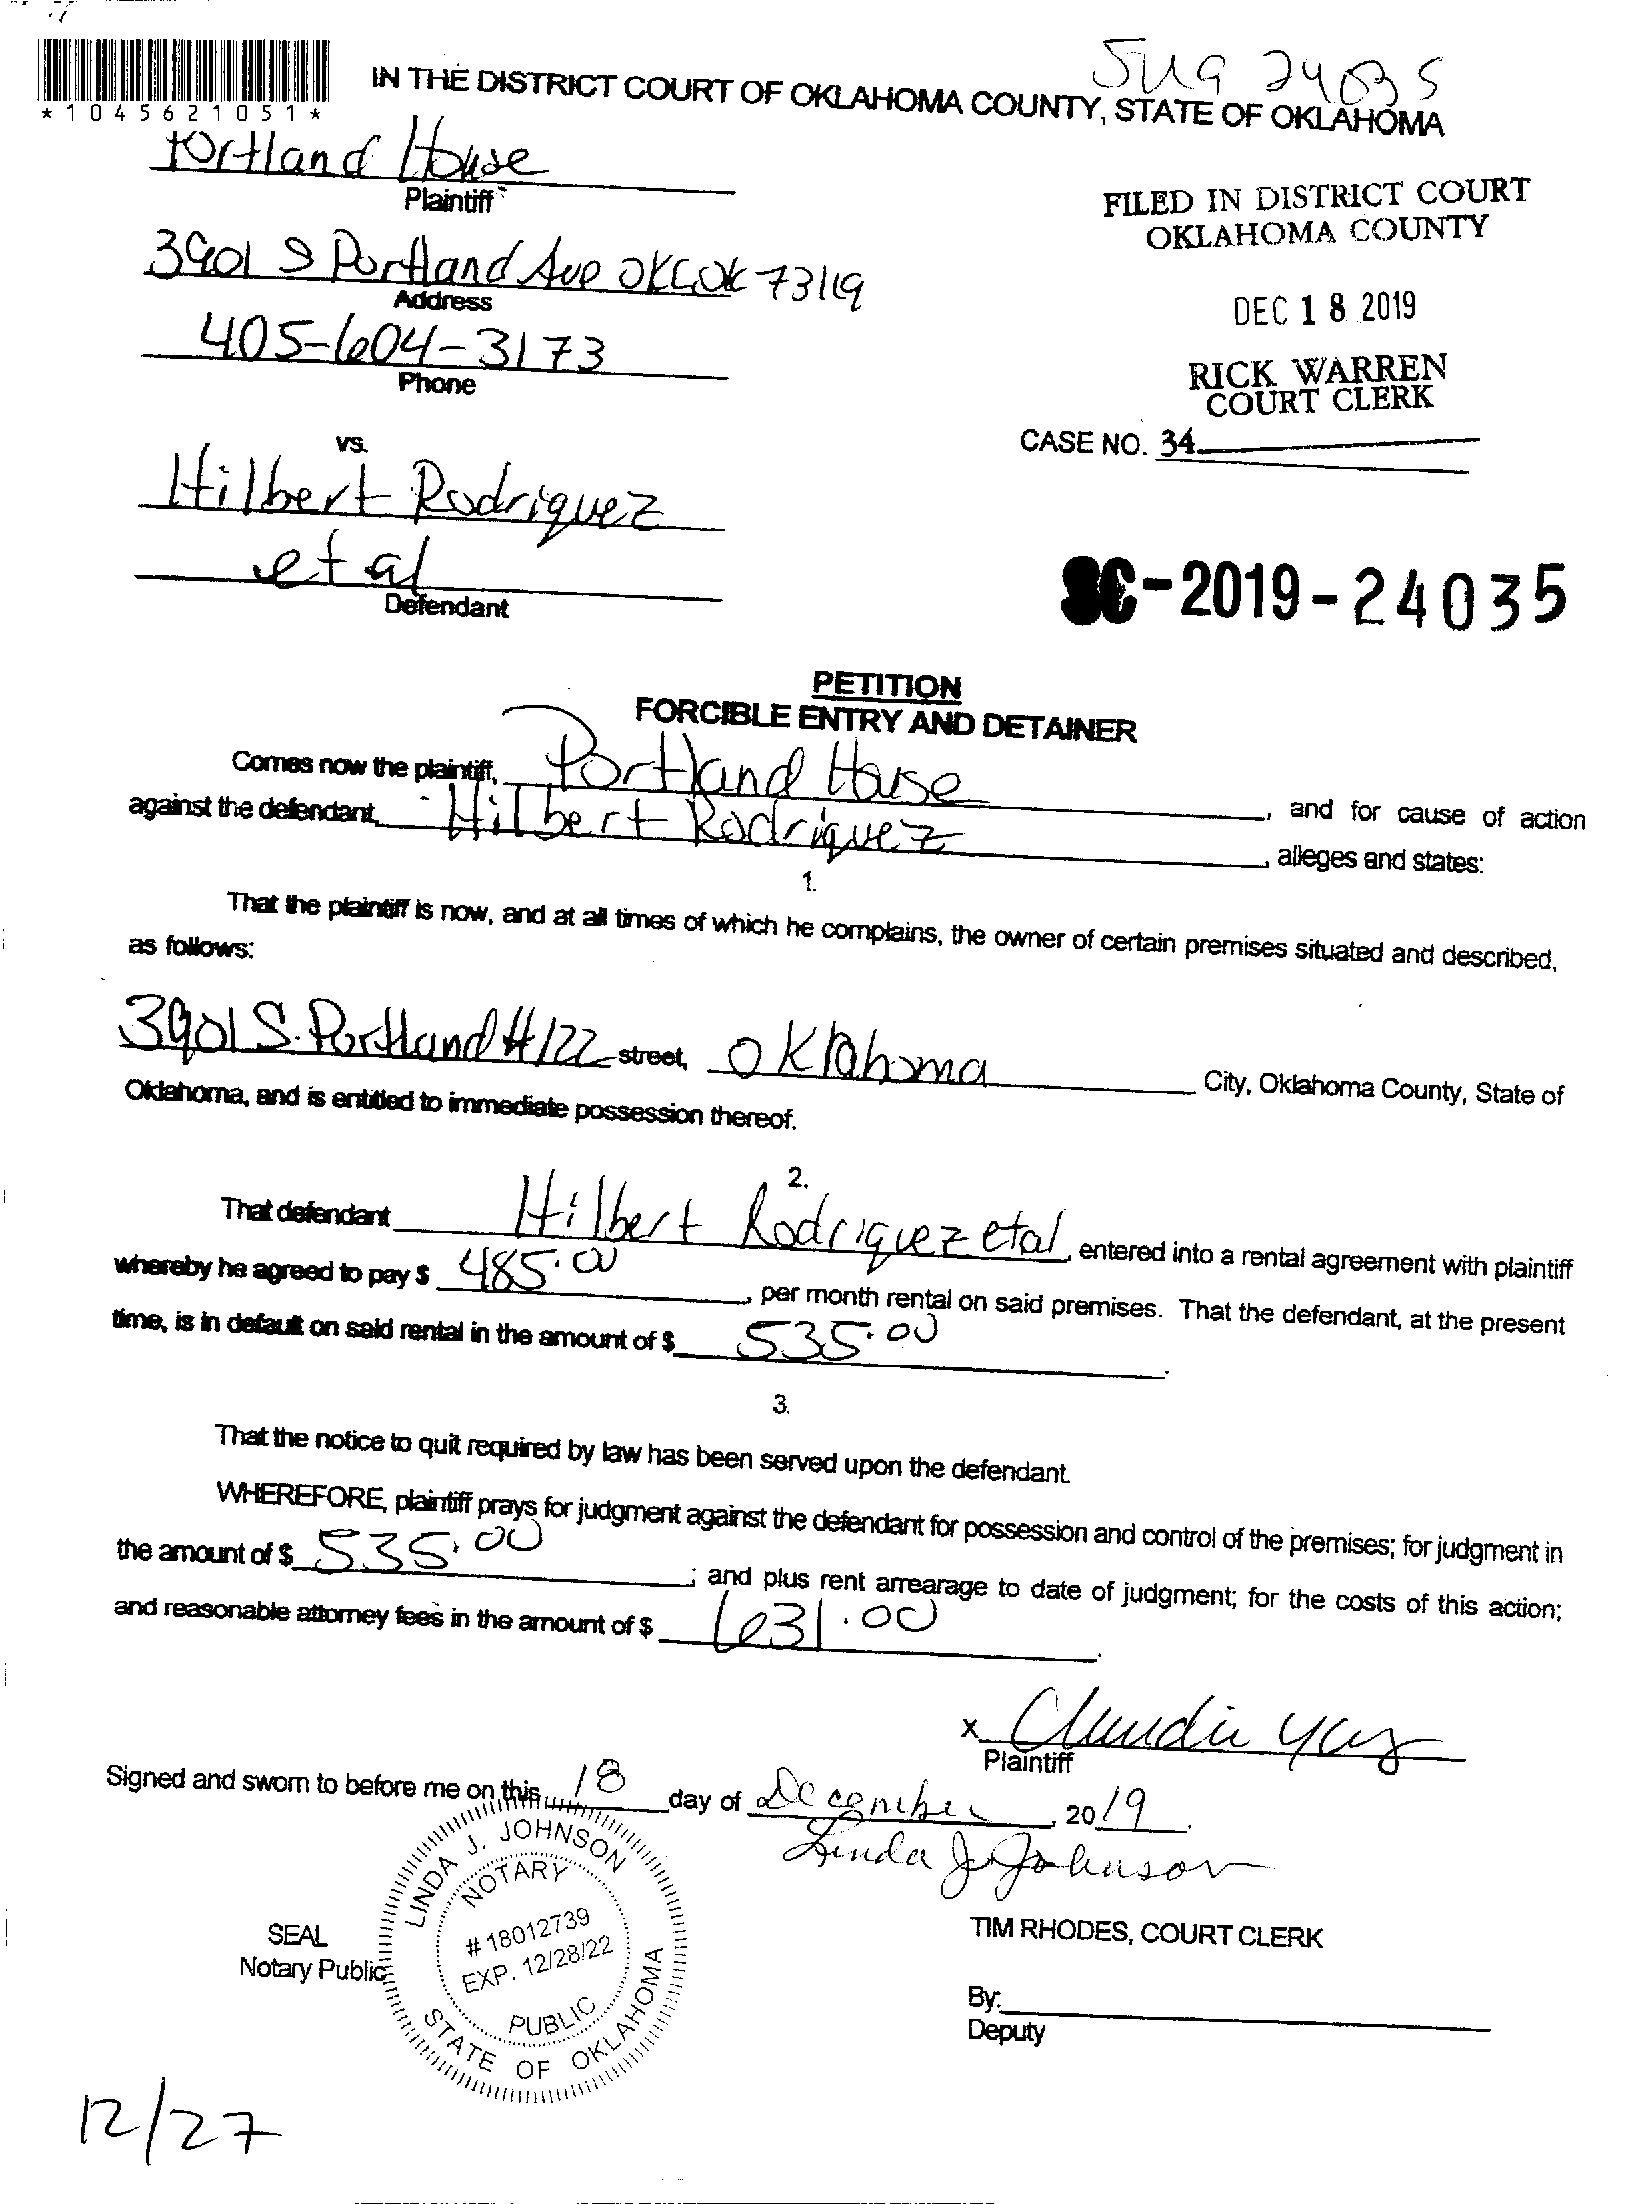 *1045621051*
IN THE DISTRICT COURT OF OKLAHOMA COUNTY, STATE OF OKLAHOMA
24035
Portland House
Plaintiff
3901 S Portland Ave OKC OK 73119
Address
405-604-3173
Phone
FILED IN DISTRICT COURT
OKLAHOMA COUNTY
DEC 18 2019
RICK WARREN
COURT CLERK
CASE NO. 34
vs.
Hilbert Rodriquez
et al
Defendant
SC-2019-24035
PETITION
FORCIBLE ENTRY AND DETAINER
Comes now the plaintiff, Portland House, and for cause of action
against the defendant, Hilbert Rodriquez, alleges and states:
1.
That the plaintiff is now, and at all times of which he complains, the owner of certain premises situated and described,
as follows:
3901 S. Portland #122 street, Oklahoma City, Oklahoma County, State of
Oklahoma, and is entitled to immediate possession thereof.
2.
That defendant Hilbert Rodriquez etal, entered into a rental agreement with plaintiff
whereby he agreed to pay $ 485.00, per month rental on said premises. That the defendant, at the present
time, is in default on said rental in the amount of $ 535.00.
3.
That the notice to quit required by law has been served upon the defendant.
WHEREFORE, plaintiff prays for judgment against the defendant for possession and control of the premises; for judgment in
the amount of $ 535.00; and plus rent arrearage to date of judgment; for the costs of this action;
and reasonable attorney fees in the amount of $ 631.00.
x Claudia
Plaintiff
Signed and sworn to before me on this 18 day of December, 2019.
Linda J. Johnson
LINDA J. JOHNSON
NOTARY
#18012739
EXP. 12/28/22
PUBLIC
STATE OF OKLAHOMA
SEAL
Notary Public
TIM RHODES, COURT CLERK
By:
Deputy
12/27